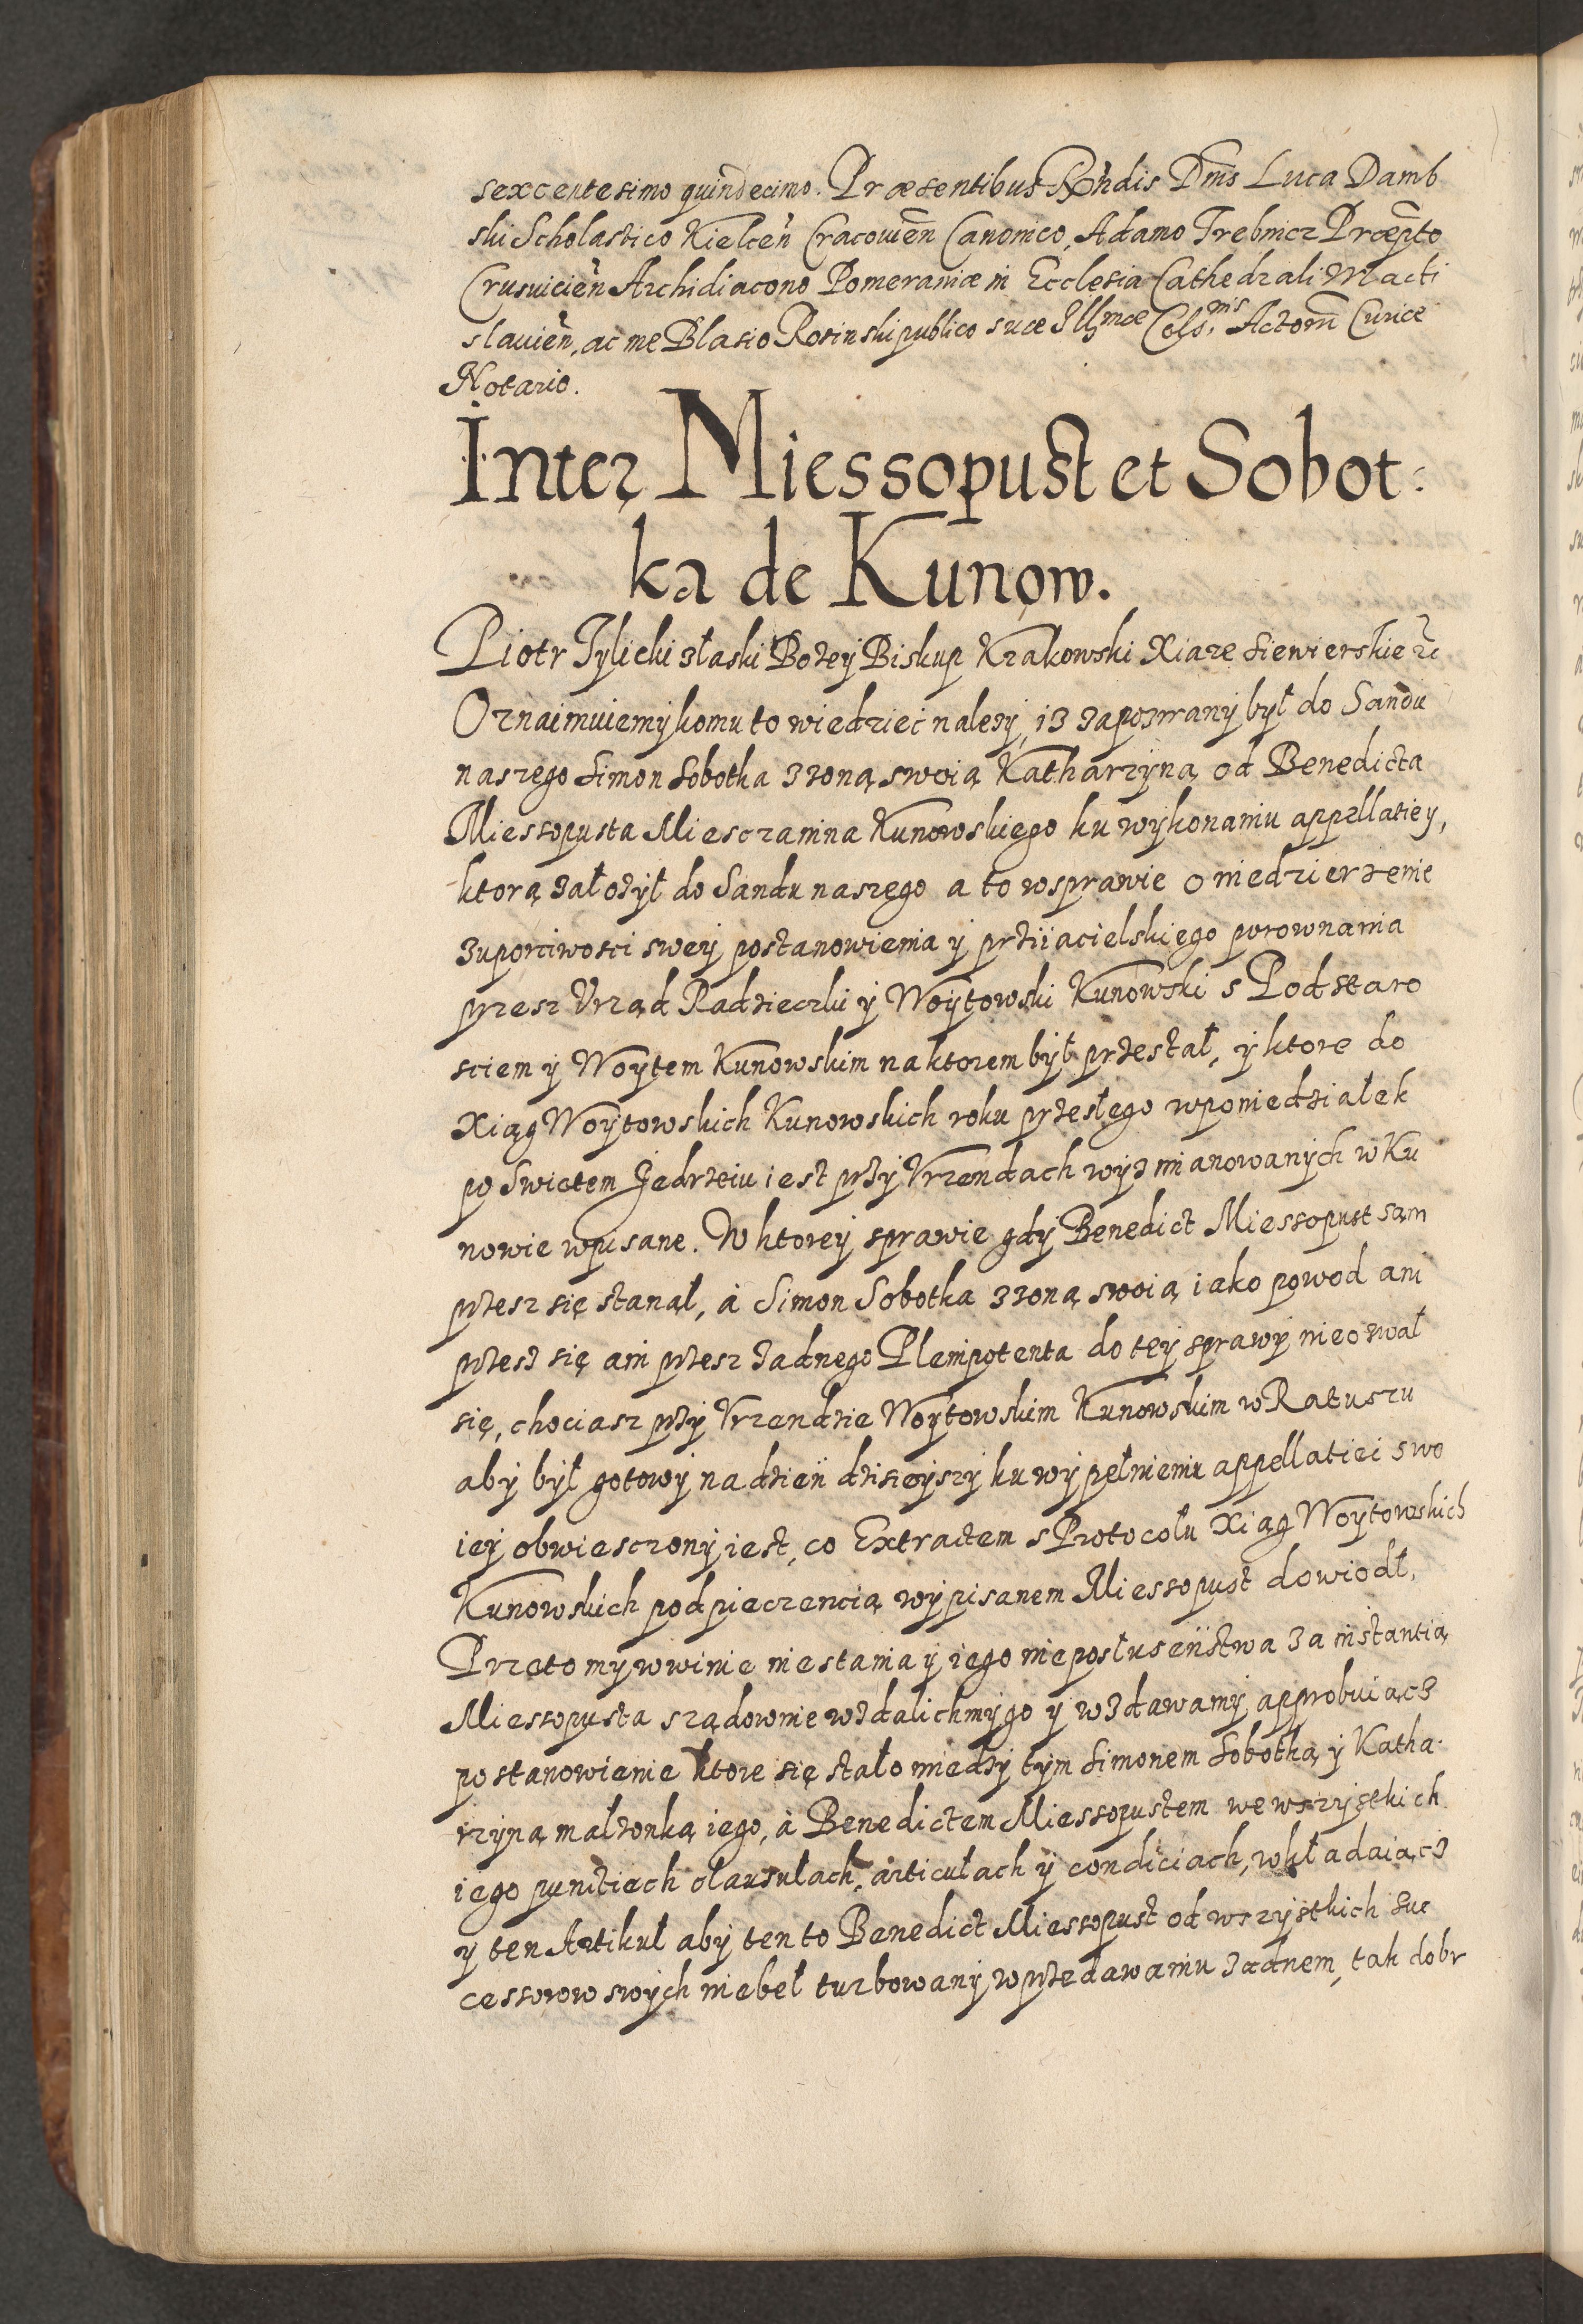 sexcentesimo quindecimo. Præsentibus Rdndis Dnis Luca Damb
ski Scholastico Kielcen̄ Cracouien̄ Canonico, Adamo Trebnicz Præpto
Crusuicien̄ Archidiacono Pomeraniæ in Ecclesia Cathedrali Wladi
slauien̄, ac me Blasio Rosinski publico suæ Illmæ Cels: mis Actorm̄ Curiæ
Notario.
Inter Miessopust et Sobot:
ka de Kunow.
Piotr Tylicki złaski Bożeÿ Biskup Krakowski Xiaze Siewierskie etc
Oznaimuiemÿ komu to wiedzieć należÿ, iz zapozwanÿ bÿł do Sandu
naszego Simon Sobotka z żoną swoią Katharzÿną od Benedicta
Miessopusta Miesczanina Kunowskiego ku wÿkonaniu appellatieÿ,
ktorą założÿł do Sandu naszego a to wsprawie o niedzierżenie
zuporciwosci sweÿ postanowienia ÿ prżiiacielskiego porownania
przesz Vrząd Radzieczki ÿ Woÿtowski Kunowski s Podstaro
sciem ÿ Woÿtem Kunowskim na ktorem bÿł prżestał, ÿ ktore do
Xiąg Woÿtowskich Kunowskich roku prżesłego wponiedziałek
po Swietem Jedrżeiu iest prżÿ Vrzendach wÿzmianowanÿch w Ku
nowie wpisane. W ktoreÿ sprawie gdÿ Benedict Miessopust sam
prżesz się stanął, à Simon Sobotka z żoną swoią iako powod ani
prżesz się ani prżesz żadnego Plenipotenta do teÿ sprawÿ nieozwał
się, chociasz prżÿ Vrzendzie Woÿtowskim Kunowskim w Ratuszu
abÿ bÿł gotowÿ na dzień dzisieÿszÿ ku wÿpełnieniu appellatiei swo
ieÿ obwiesczonÿ iest, co Extractem s Protocołu Xiąg Woÿtowskich
Kunowskich pod pieczencią wÿpisanem Miessopust dowiodł,
Przeto mÿ wwinie niestania ÿ iego nieposłuseństwa za instantią
Miessopusta sządownie wzdalichmÿ go ÿ wzdawamÿ, approbuiącz
postanowienie ktore się stało miedzÿ tÿm Simonem Sobotką ÿ Katha:
rzÿną malżonką iego, à Benedictem Miessopustem wewszÿstkich
iego punctiech clausułach, articułach ÿ condiciach, wkładaiącz
ÿ ten Artikuł abÿ ten to Benedict Miessopust od wszÿstkich suc
cessorow swÿch niebeł turbowanÿ wprżedawaniu żadnem, tak dobr